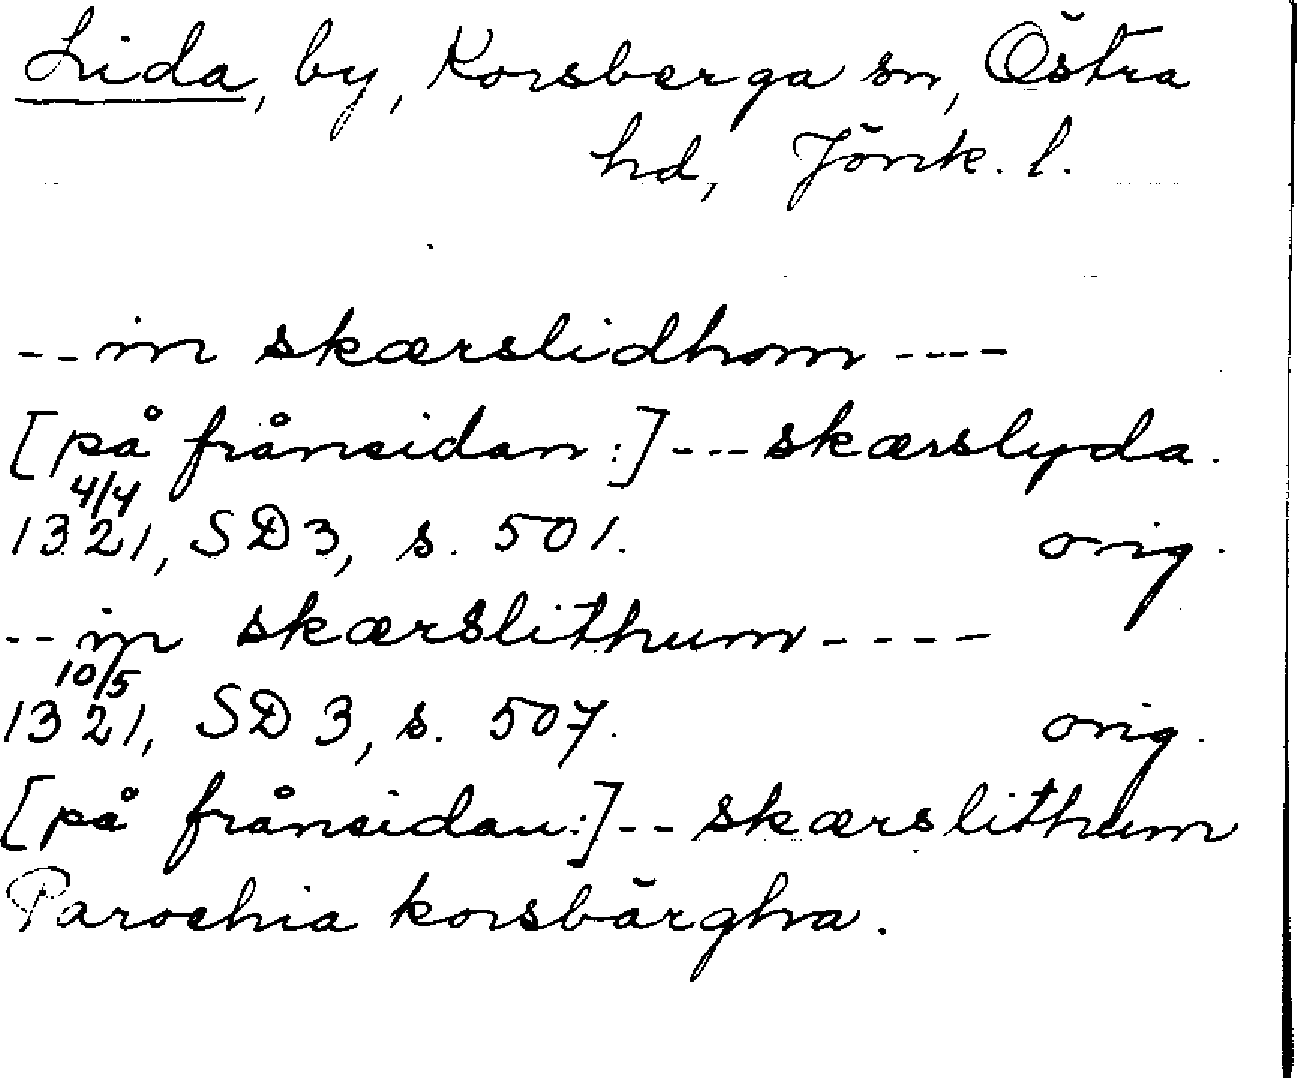 Lida, by, Korsberga sn, Östra
hd, Jönk. l.
-- in skærslidhom ----
[på frånsidan:] --- skærslyda.
4/4
1321, SD 3, s. 501. orig.
-- in skærslithum ----
10/5
1321, SD 3, s. 507. orig.
[på frånsidan:] -- skærslithum
Parochia korsbärgha.